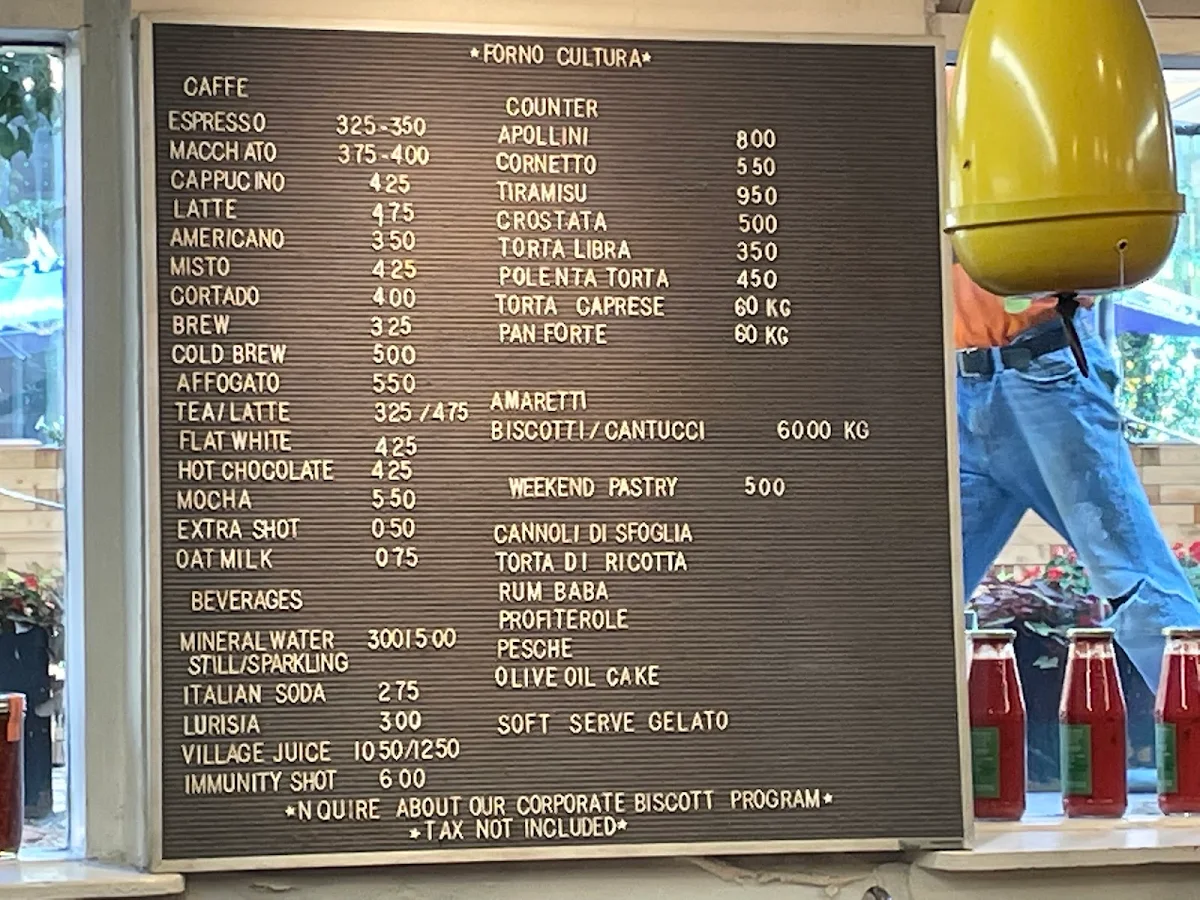 *FORNO CULTURA*
CAFFE
ESPRESSO 325-350
MACCH ATO 375-400
CAPPUC INO 425
LATTE 475
AMERICANO 350
MISTO 425
CORTADO 400
BREW 325
COLD BREW 500
AFFOGATO 550
TEA/LATTE 325/475
FLAT WHITE 425
HOT CHOCOLATE 425
MOCHA 550
EXTRA SHOT 050
OAT MILK 075
BEVERAGES
MINERAL WATER 300I500
STILL/SPARKLING
ITALIAN SODA 275
LURISIA 300
VILLAGE JUICE 1050/1250
IMMUNITY SHOT 600
COUNTER
APOLLINI 800
CORNETTO 550
TIRAMISU 950
CROSTATA 500
TORTA LIBRA 350
POLENTA TORTA 450
TORTA CAPRESE 60 KG
PAN FORTE 60 KG
AMARETTI
BISCOTTI/CANTUCCI 6000 KG
WEEKEND PASTRY 500
CANNOLI DI SFOGLIA
TORTA DI RICOTTA
RUM BABA
PROFITEROLE
PESCHE
OLIVE OIL CAKE
SOFT SERVE GELATO
*N QUIRE ABOUT OUR CORPORATE BISCOTT PROGRAM*
*TAX NOT INCLUDED*